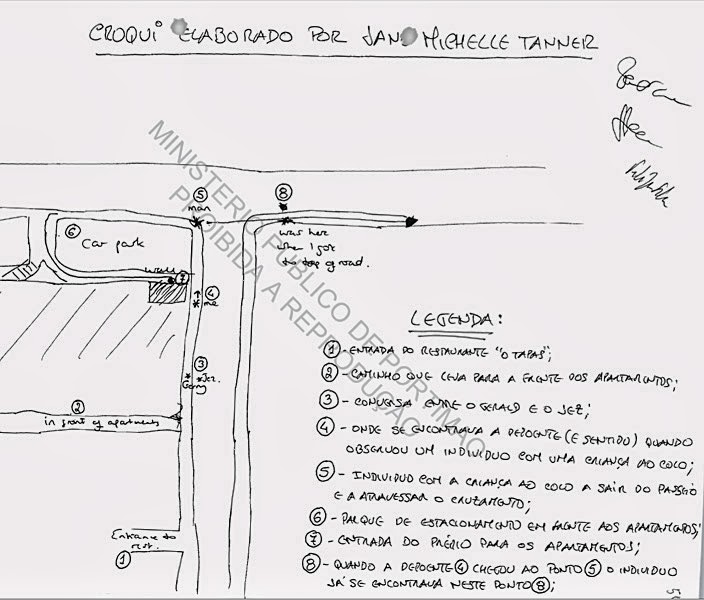 CROQUI ELABORADO POR JANE MICHELLE TANNER
MINISTERIO PÚBLICO DE PORTIMÃO
PROIBIDA A REPRODUÇÃO
⑤
man
⑧
was here
when I got
to top of road.
⑥
Car park
wall
⑦
④
me
③
Gerry
Jez.
②
in front of apartments
Entrance to
rest.
①
LEGENDA:
① - ENTRADA DO RESTAURANTE "O TAPAS";
② - CAMINHO QUE LEVA PARA A FRENTE DOS APARTAMENTOS;
③ - CONVERSA ENTRE O GERALD E O JEZ;
④ - ONDE SE ENCONTRAVA A DEPOENTE (E SENTIDO) QUANDO
OBSERVOU UM INDIVIDUO COM UMA CRIANÇA AO COLO;
⑤ - INDIVIDUO COM A CRIANÇA AO COLO A SAIR DO PASSEIO
E A ATRAVESSAR O CRUZAMENTO;
⑥ - PARQUE DE ESTACIONAMENTO EM FRENTE AOS APARTAMENTOS;
⑦ - ENTRADA DO PRÉDIO PARA OS APARTAMENTOS;
⑧ - QUANDO A DEPOENTE ④ CHEGOU AO PONTO ⑤ O INDIVIDUO
JÁ SE ENCONTRAVA NESTE PONTO ⑧;